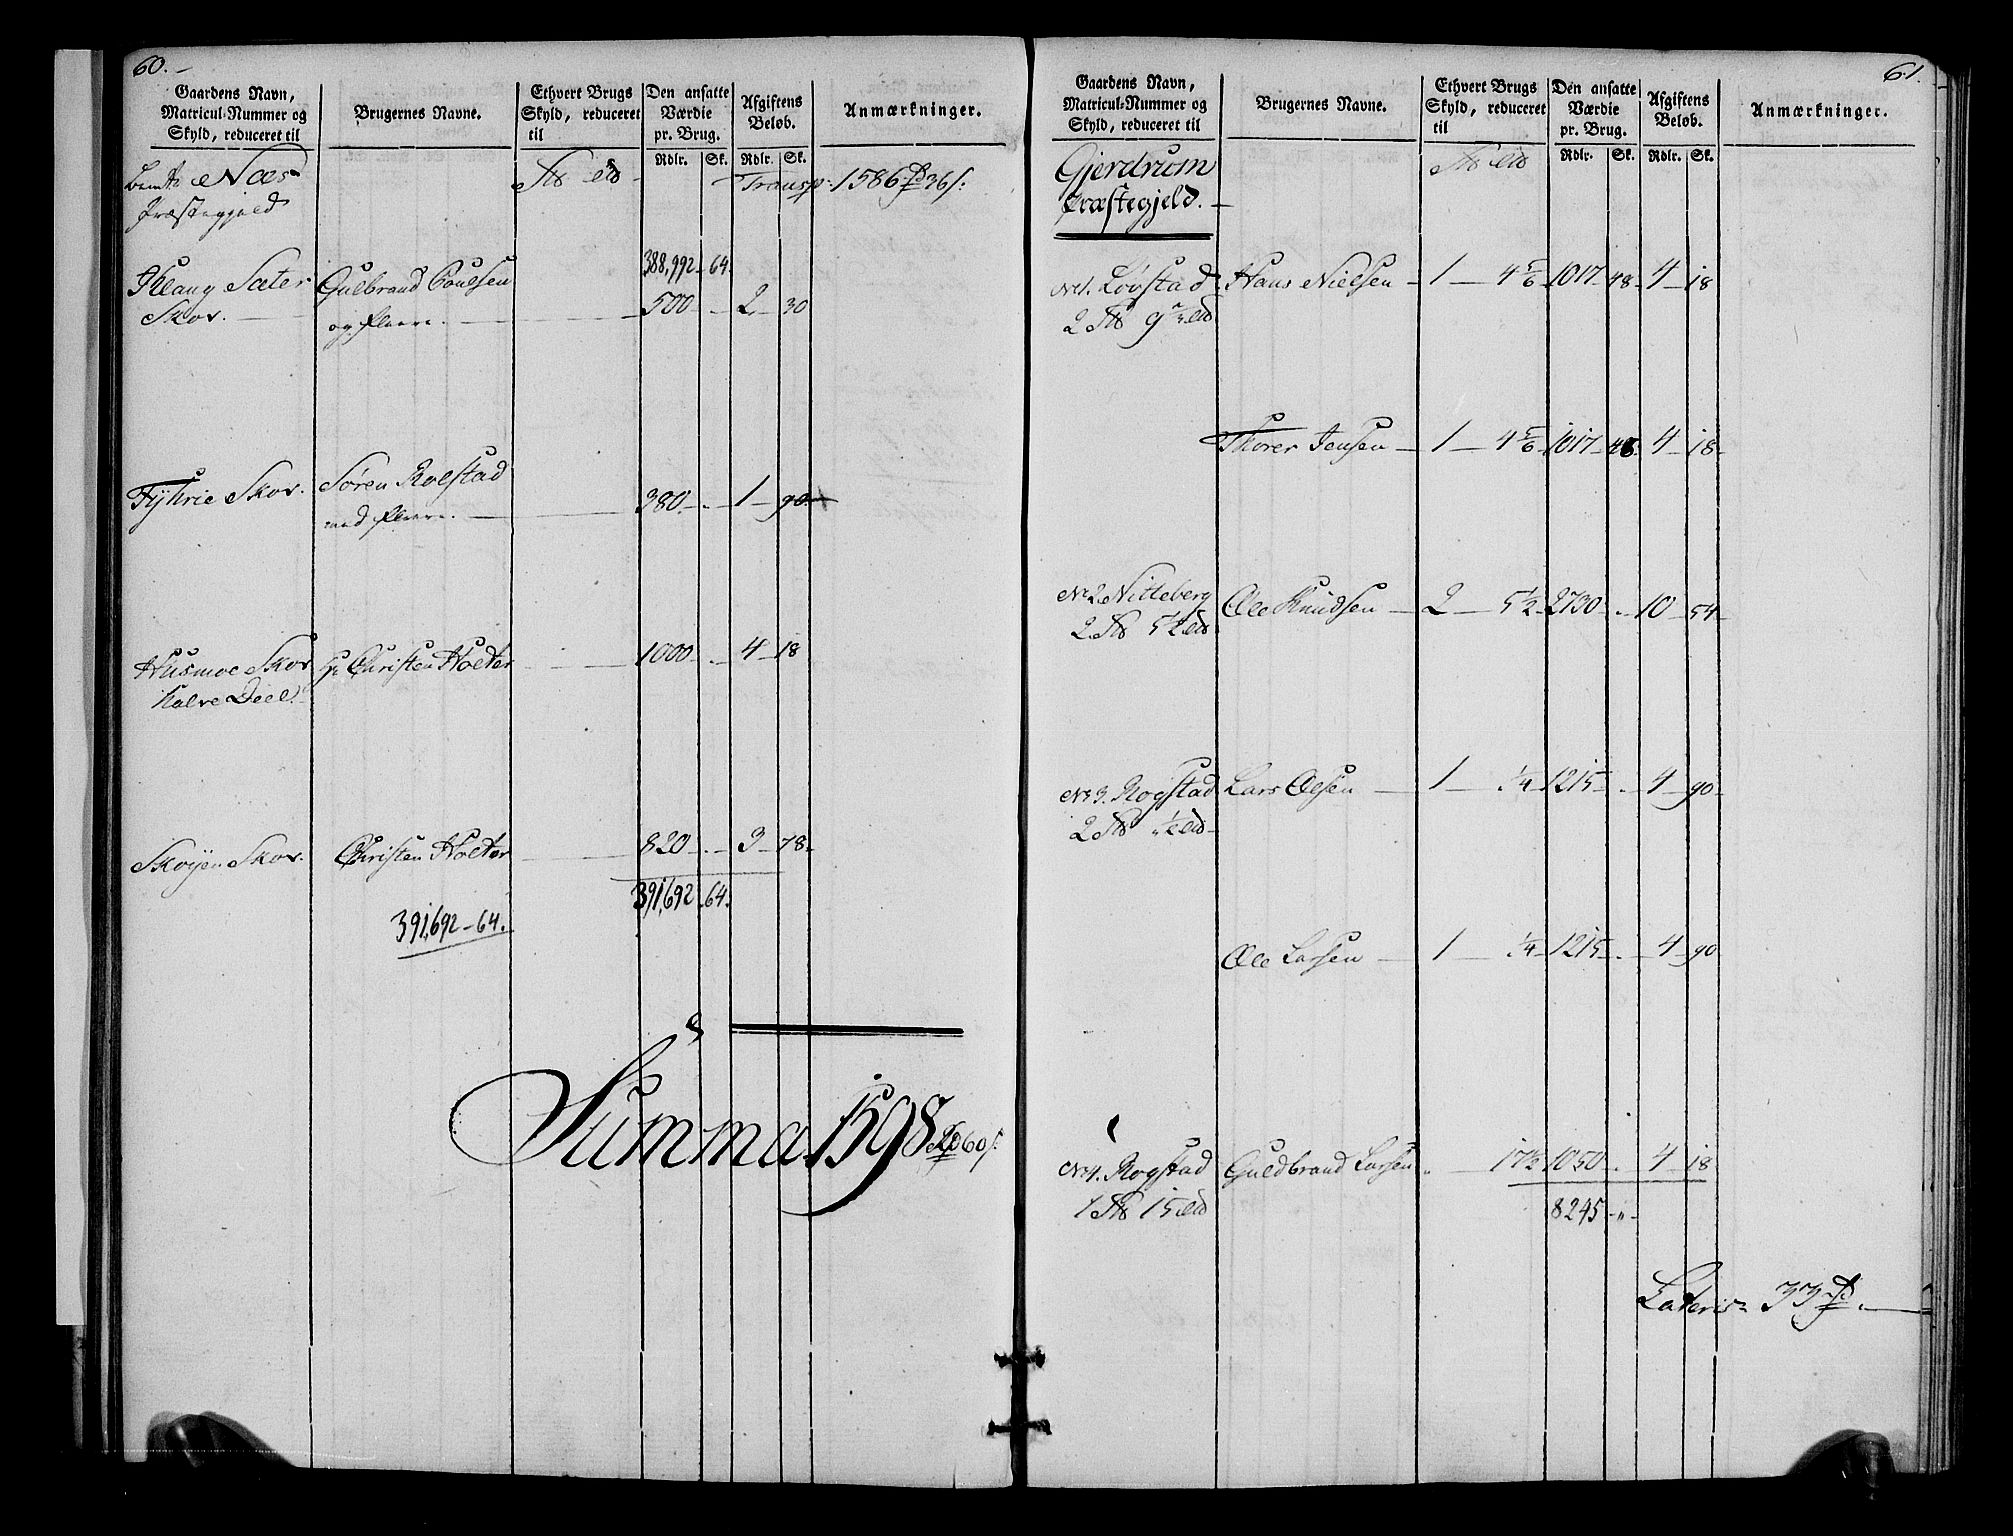 60.
Gaardens Navn, Matricul-Nummer og Skyld, reduceret til
Brugernes Navne.
Ethvert Brugs Skyld, reduceret til
Den ansatte Værdie pr. Brug.
Afgiftens Beløb.
Anmærkninger.
Rdlr. Sk. Rdlr. Sk.
Næs Transp. 1586 36
Præstegjeld
388,992 64.
Sæter Gulbrand Poulsen
Skov. og flere. 500 2 30
Søren Rolstad
Skov. med flere. 380 1 90
Husmoe Skov Christen Holter 1000 4 18
halve Deel.
Skøyen Skov. Christen Holter 820 3 78
391,692 64.
391,692 - 64.
Summa 1598 60
61.
Gaardens Navn, Matricul-Nummer og Skyld, reduceret til
Brugernes Navne.
Ethvert Brugs Skyld, reduceret til
Den ansatte Værdie pr. Brug.
Afgiftens Beløb.
Anmærkninger.
Rdlr. Sk. Rdlr. Sk.
Gjerdrum
Præstegjeld.
No 1. Løvstad Hans Nielsen 1 4 5/6 1017 48 4 18
Thorer Jensen 1 4 5/6 1017 48 4 18
No 2. Nitteberg Ole Knudsen 2 5 1/2 2730 10 54
2 5 1/2
No 3. Rogstad Lars Olesen 1 1/4 1215 4 90
2 1/2
Ole Larsen 1 1/4 1215 4 90
No 4. Rogstad Guldbrand Larsen 17 1/2 1050 4 18
1 15 8245
Lateris 33